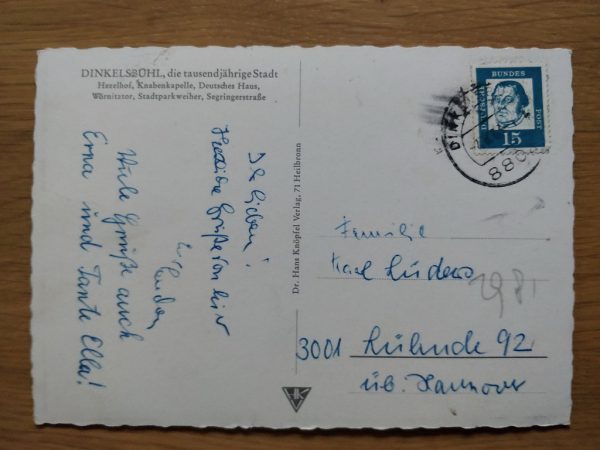 DINKELSBÜHL, die tausendjährige Stadt
Hezelhof, Knabenkapelle, Deutsches Haus,
Wörnitztor, Stadtparkweiher, Segringerstraße
Ihr Lieben!
Herzliche Grüße von hier
Viele Grüße auch
Erna und Tante Ella!
Dr. Hans Knöpfel Verlag, 71 Heilbronn
DEUTSCHE
BUNDES
POST
15
DINKE
880
Familie
Karl Lüders
3001 Lühnde 92
üb. Hannover